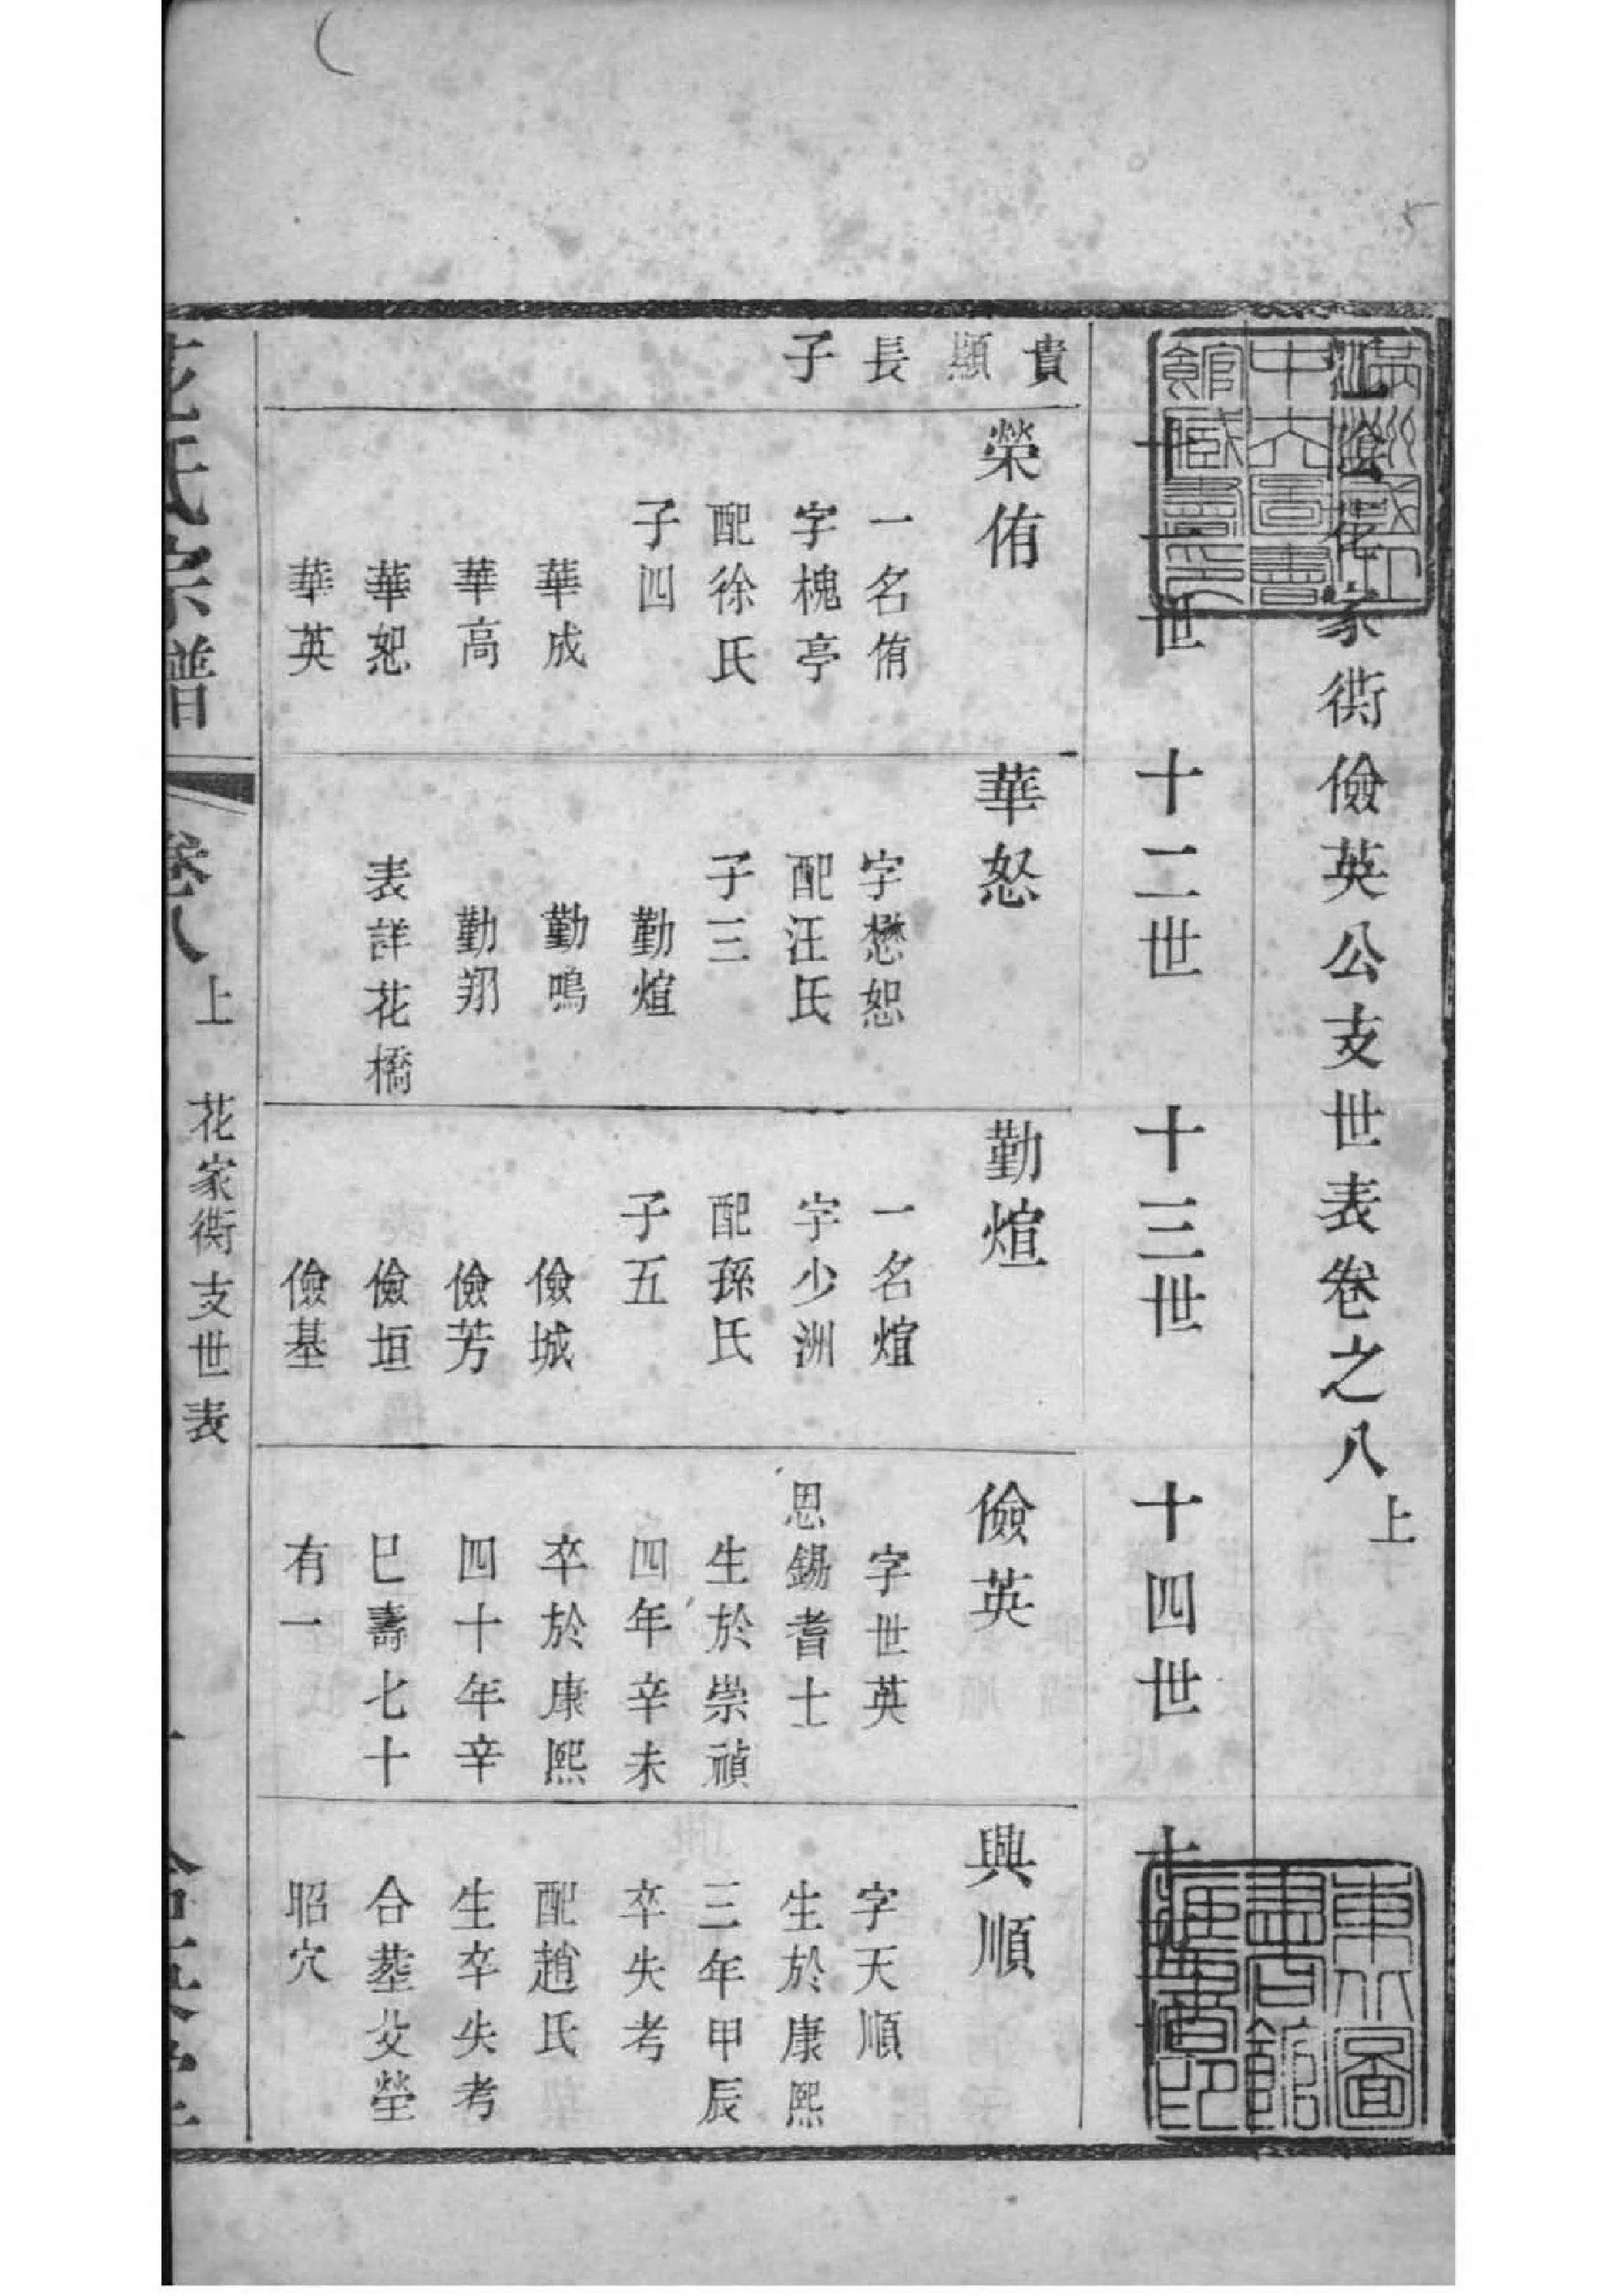 江陰花家衖儉英公支世表卷之八上
十一世
十二世
十三世
十四世
十五世
貴
顯
長
子
榮侑
一名侑
字槐亭
配徐氏
子四
華成
華高
華恕
華英
華恕
字懋恕
配汪氏
子三
勤煊
勤鳴
勤翔
表詳花橋
勤煊
一名煊
字少洲
配孫氏
子五
儉城
儉芳
儉垣
儉基
儉英
字世英
恩錫耆士
生於崇禎
四年辛未
卒於康熙
四十年辛
巳壽七十
有一
興順
字天順
生於康熙
三年甲辰
卒失考
配趙氏
生卒失考
合葬父塋
昭穴
花氏宗譜
卷八上
花家衖支世表
東北圖
書館